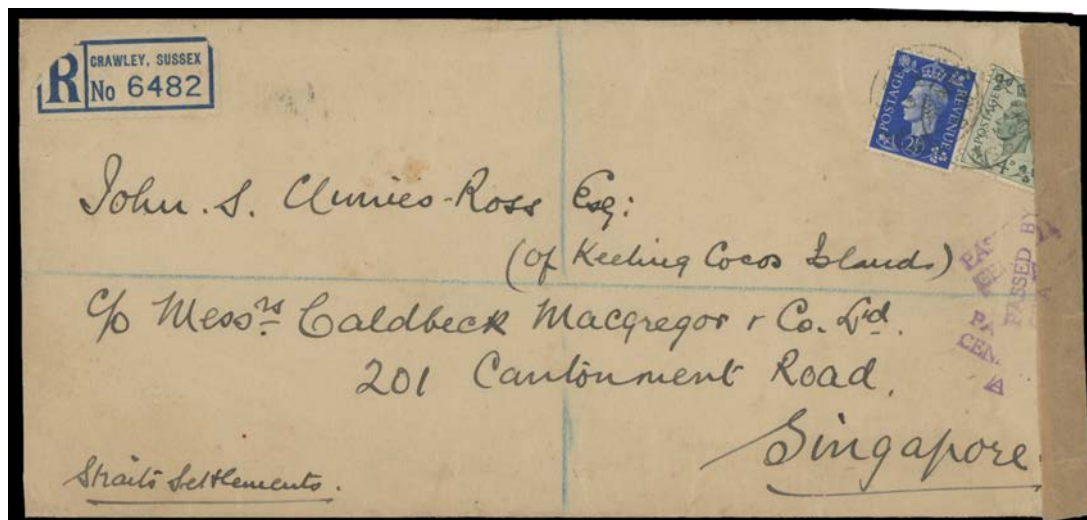 R
CRAWLEY, SUSSEX
No 6482
POSTAGE
REVENUE
POSTAGE
John. S. Clunies-Ross Esq:
(of Keeling Cocos Islands)
c/o Messrs Caldbeck Macgregor & Co. Ltd.
201 Cantonment Road.
Singapore.
Straits Settlements.
PASSED BY